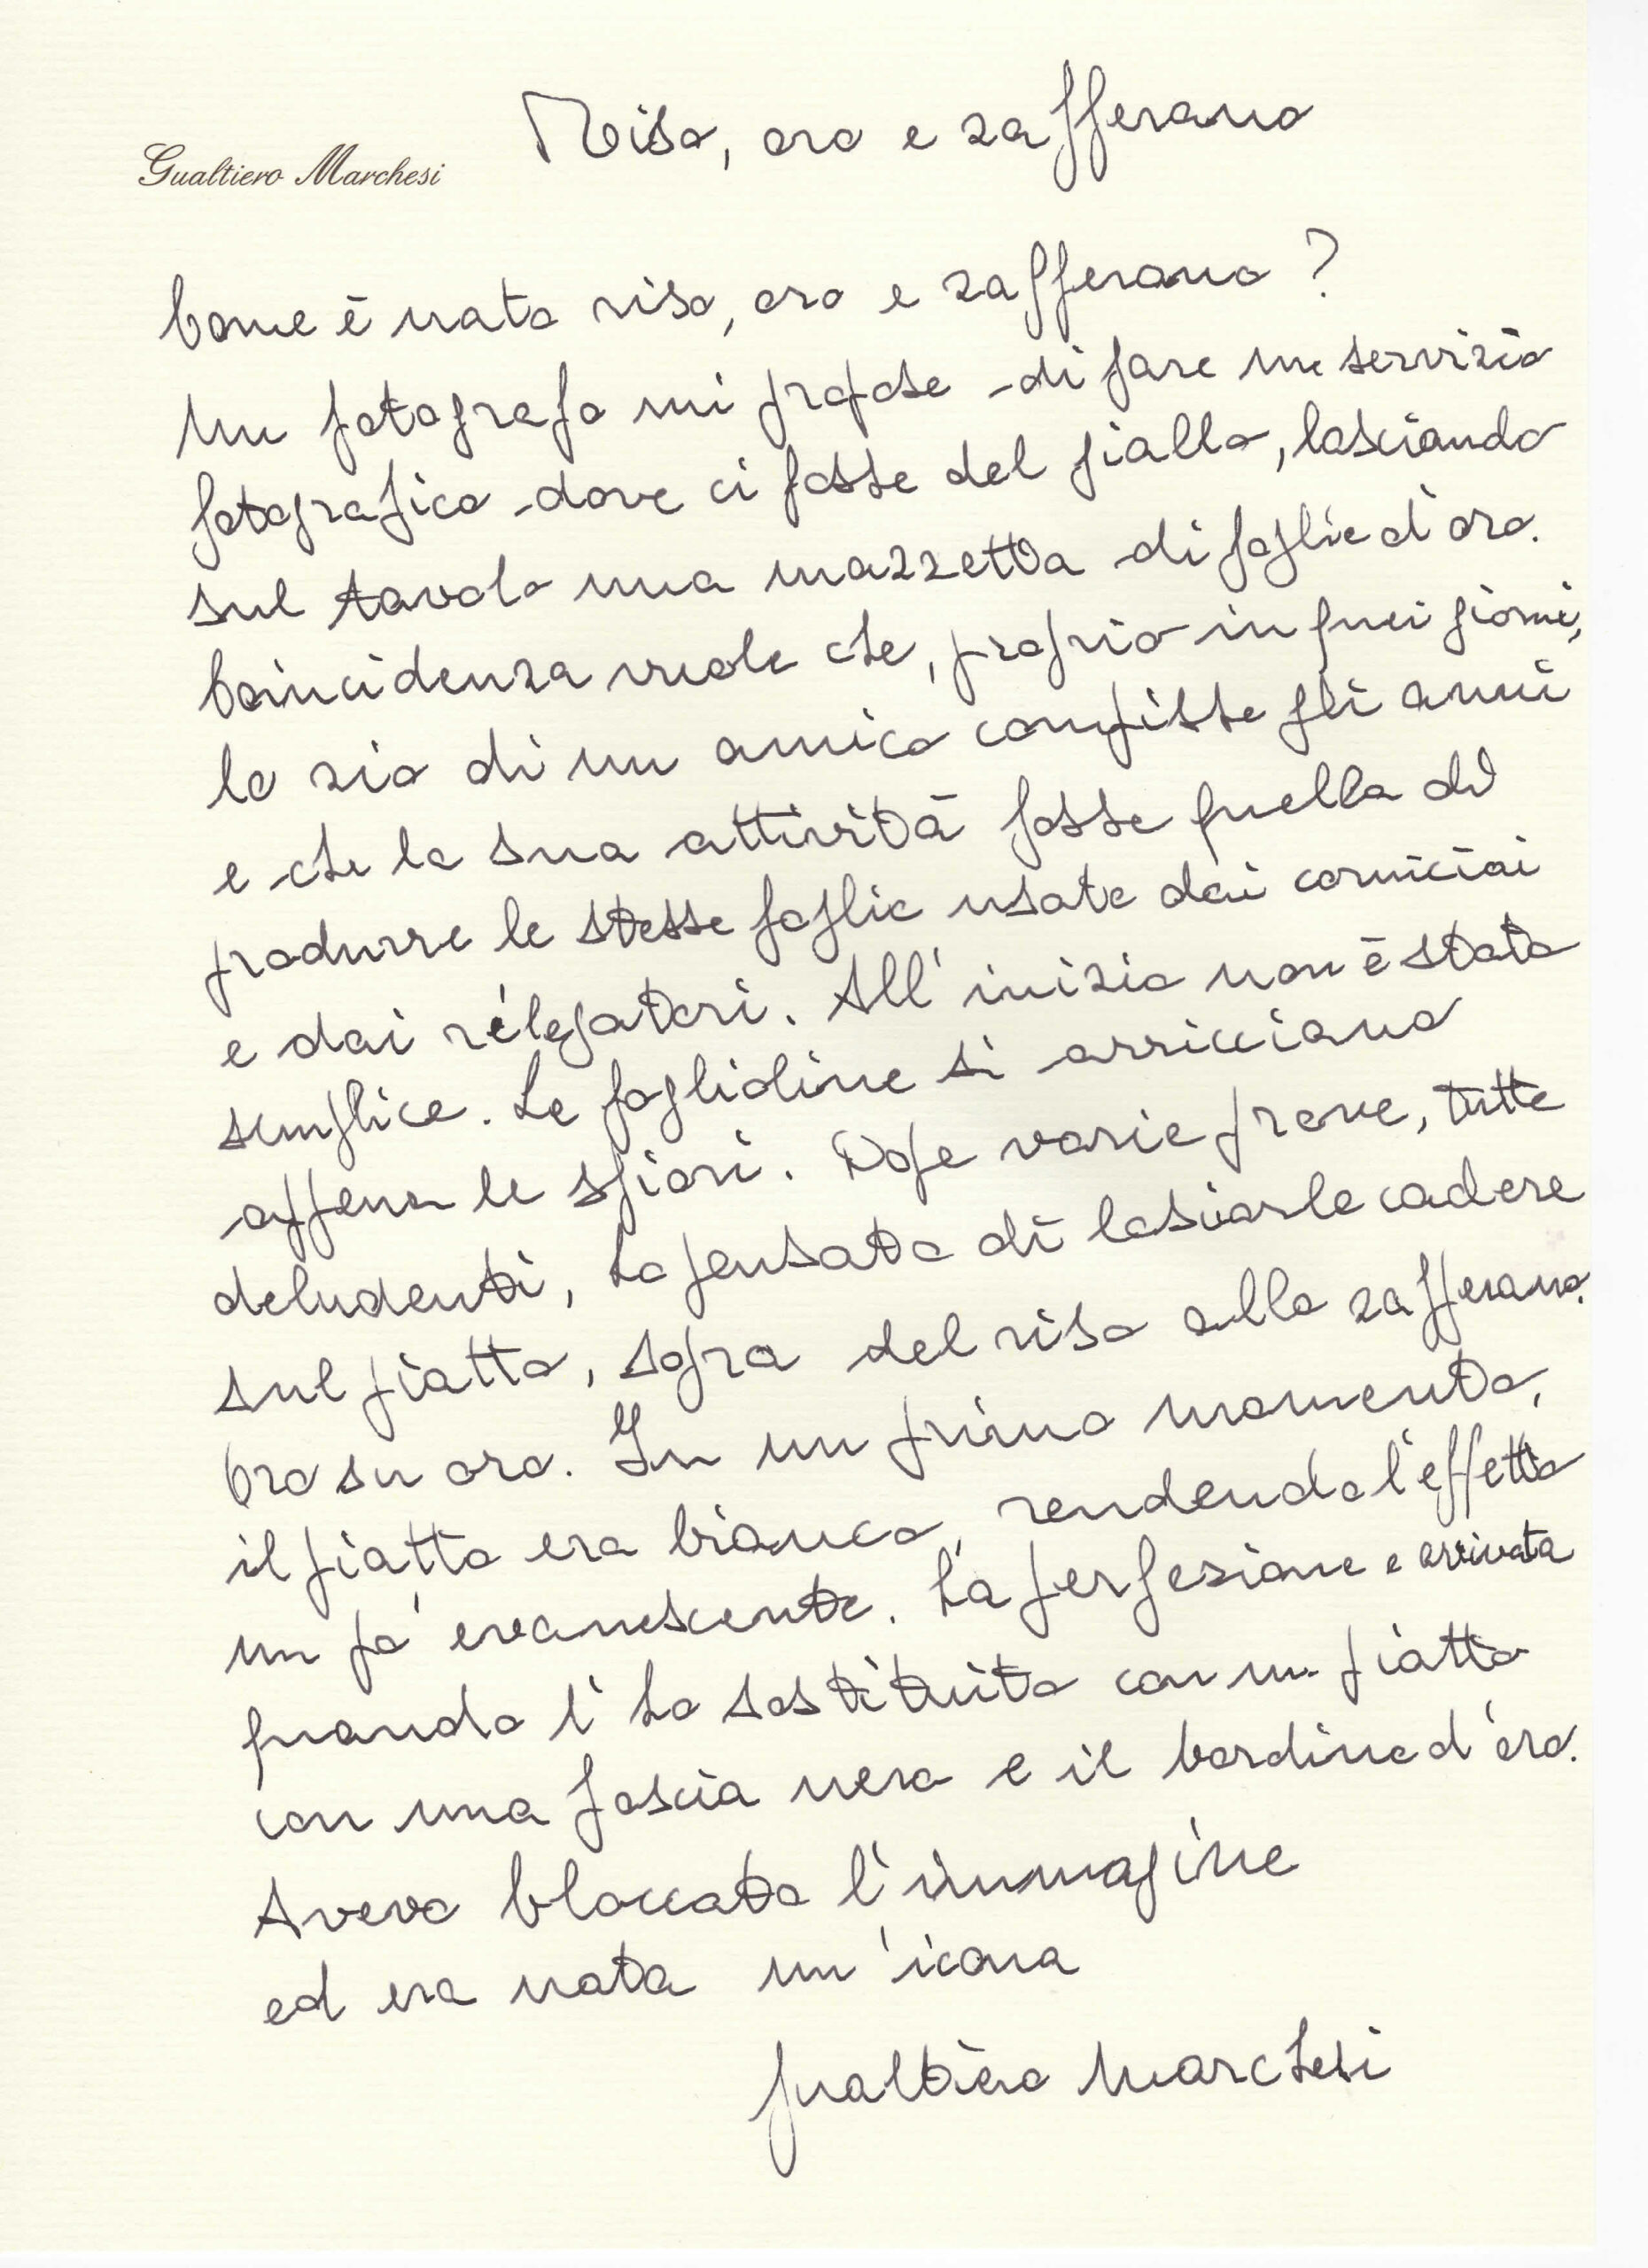 Gualtiero Marchesi
Riso, oro e zafferano
Come è nato riso, oro e zafferano?
Un fotografo mi propose di fare un servizio
fotografico dove ci fosse del giallo, lasciando
sul tavolo una mazzetta di foglie d'oro.
Coincidenza vuole che, proprio in quei giorni,
lo zio di un amico compisse gli anni
e che la sua attività fosse quella di
produrre le stesse foglie usate dai corniciai
e dai rilegatori. All'inizio non è stato
semplice. Le foglioline si arricciano
appena le sfiori. Dopo varie prove, tutte
deludenti, ho pensato di lasciarle cadere
sul piatto, sopra del riso allo zafferano.
Oro su oro. In un primo momento,
il piatto era bianco, rendendo l'effetto
un po' evanescente. La perfezione è arrivata
quando l'ho sostituito con un piatto
con una fascia nera e il bordino d'oro.
Avevo bloccato l'immagine
ed era nata un'icona
Gualtiero Marchesi